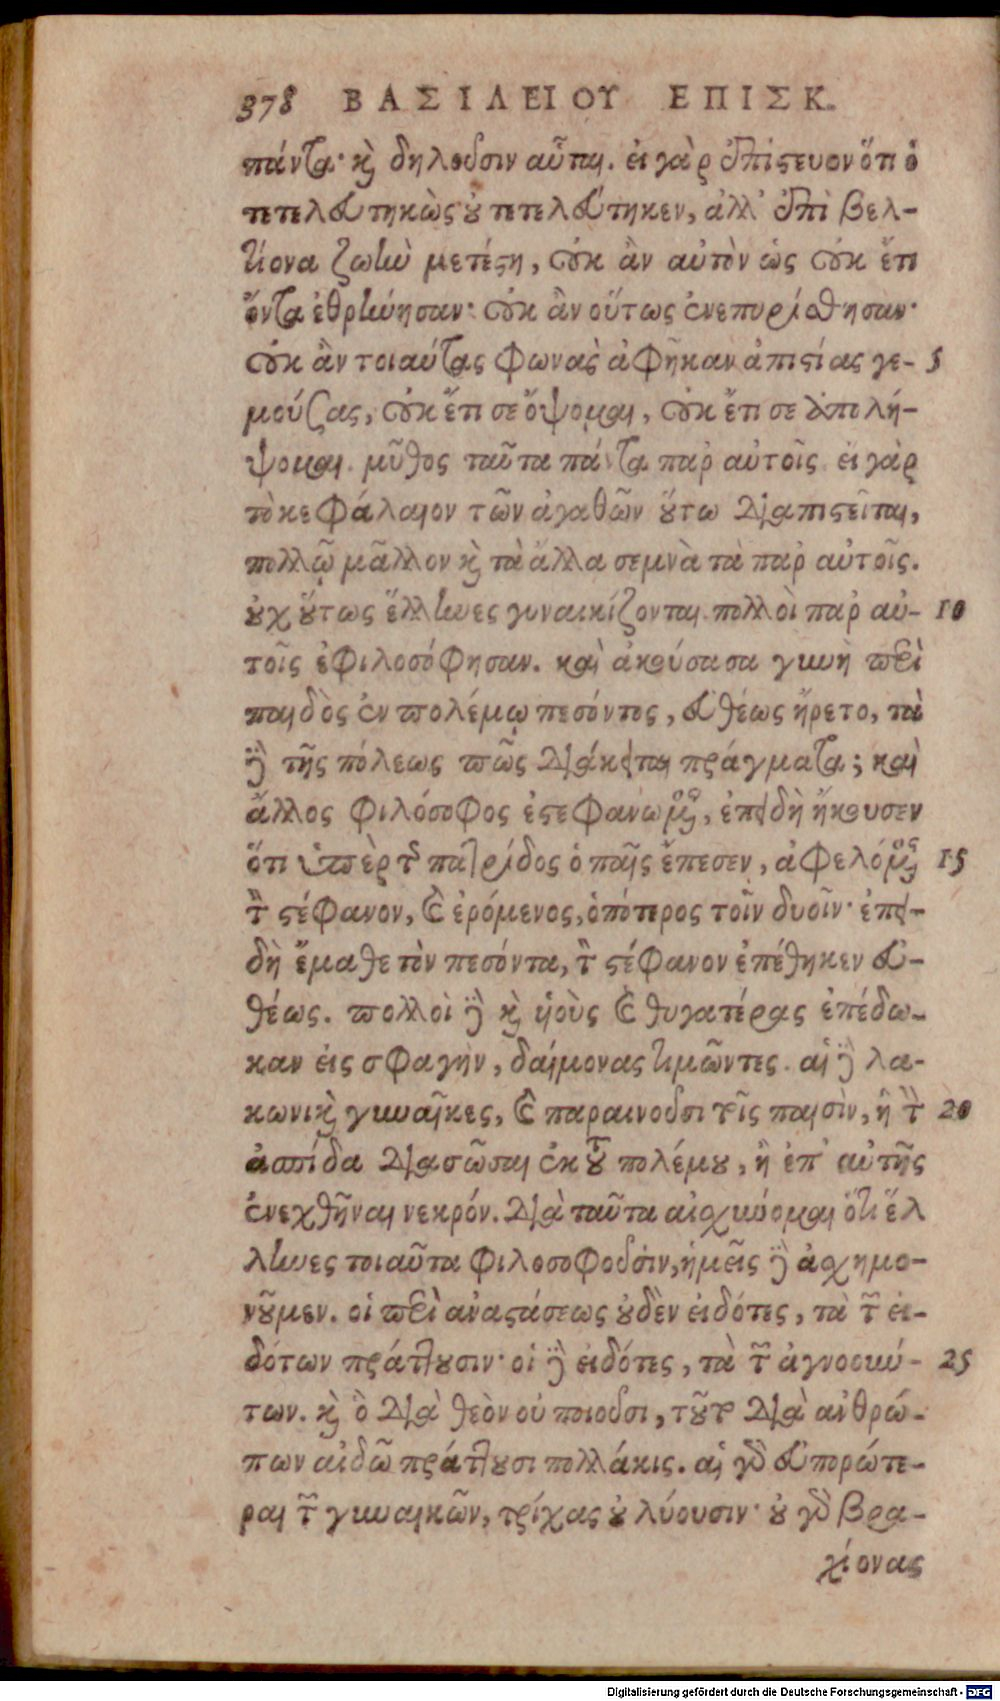 378 ΒΑΣΙΛΕΙΟΥ ΕΠΙΣΚ.
πάντα· καὶ δηλοῦσιν αὗται. εἰ γὰρ ἐπίστευον ὅτι ὁ
τετελευτηκὼς οὐ τετελεύτηκεν, ἀλλ' ἐπὶ βελ-
τίονα ζωὴν μετέστη, οὐκ ἂν αὐτὸν ὡς οὐκ ἔτι
ὄντα ἐθρήνησαν· οὐκ ἂν οὕτως ἐνεπυρίσθησαν·
οὐκ ἂν τοιαύτας φωνὰς ἀφῆκαν ἀπιστίας γε- 5
μούσας, οὐκ ἔτι σε ὄψομαι, οὐκ ἔτι σε ἀπολή-
ψομαι. μῦθος ταῦτα πάντα παρ αὐτοῖς. εἰ γὰρ
τὸ κεφάλαιον τῶν ἀγαθῶν οὕτω διαπιστεῖται,
πολλῷ μᾶλλον καὶ τὰ ἄλλα σεμνὰ τὰ παρ αὐτοῖς.
οὐχ οὕτως ἕλληνες γυναικίζονται. πολλοὶ παρ αὐ- 10
τοῖς ἐφιλοσόφησαν. καὶ ἀκούσασα γυνὴ περὶ
παιδὸς ἐν πολέμῳ πεσόντος, εὐθέως ἤρετο, τὰ
δὲ τῆς πόλεως πῶς διάκειται πράγματα; καὶ
ἄλλος φιλόσοφος ἐστεφανωμένος, ἐπειδὴ ἤκουσεν
ὅτι ὑπὲρ τῆς πατρίδος ὁ παῖς ἔπεσεν, ἀφελόμενος 15
τὸν στέφανον, καὶ ἐρόμενος, ὁπότερος τοῖν δυοῖν· ἐπει-
δὴ ἔμαθε τὸν πεσόντα, τὸν στέφανον ἐπέθηκεν εὐ-
θέως. πολλοὶ δὲ καὶ υἱοὺς καὶ θυγατέρας ἐπέδω-
καν εἰς σφαγὴν, δαίμονας τιμῶντες. αἱ δὲ λα-
κωνικαὶ γυναῖκες, καὶ παραινοῦσι τοῖς παισὶν, ἢ τὴν 20
ἀσπίδα διασῶσαι ἐκ τοῦ πολέμου, ἢ ἐπ' αὐτῆς
ἐνεχθῆναι νεκρόν. διὰ ταῦτα αἰσχύνομαι ὅτι ἕλ
ληνες τοιαῦτα φιλοσοφοῦσιν, ἡμεῖς δὲ ἀσχημο-
νοῦμεν. οἱ περὶ ἀναστάσεως οὐδὲν εἰδότες, τὰ τῶν εἰ-
δότων πράττουσιν· οἱ δὲ εἰδότες, τὰ τῶν ἀγνοούν- 25
των. καὶ ὃ διὰ θεὸν οὐ ποιοῦσι, τοῦτο διὰ ἀνθρώ-
πων αἰδῶ πράττουσι πολλάκις. αἱ γὰρ εὐπορώτε-
ραι τῶν γυναικῶν, τρίχας οὐ λύουσιν· οὐ γὰρ βρα-
χίονας
Digitalisierung gefördert durch die Deutsche Forschungsgemeinschaft - DFG